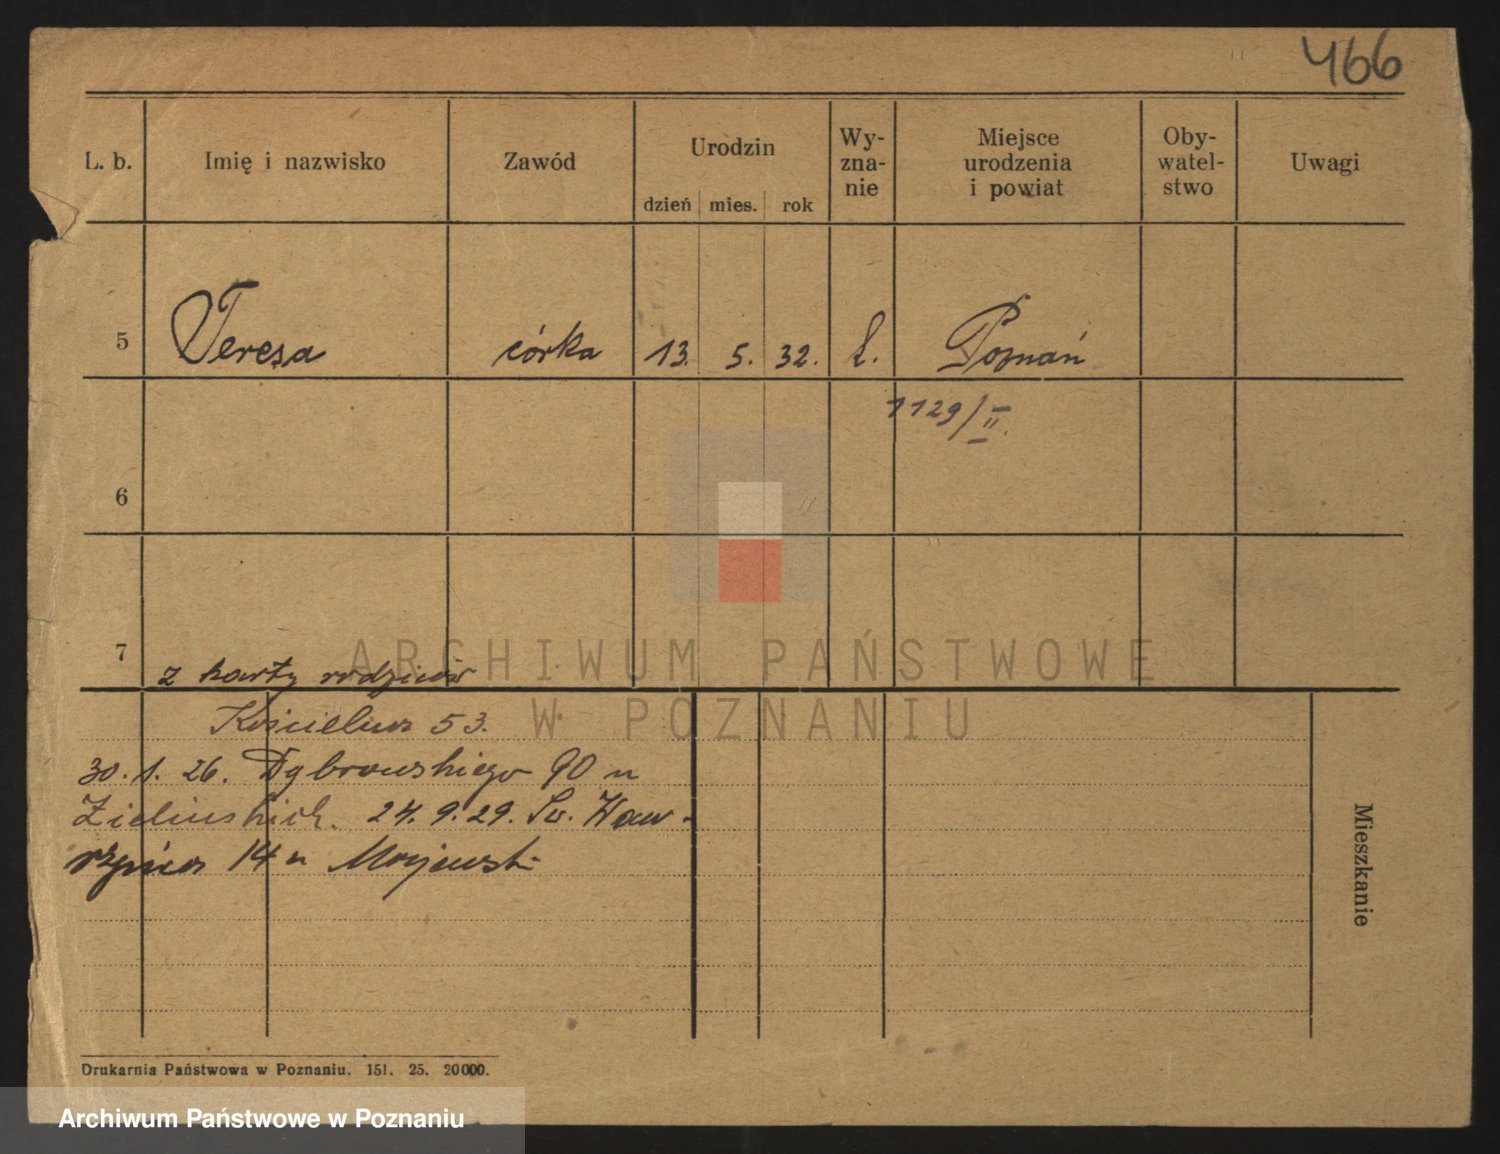 466
L. b. Imię i nazwisko Zawód Urodzin dzień mies. rok Wy-zna-nie Miejsce urodzenia i powiat Oby-watel-stwo Uwagi
5 Teresa córka 13. 5. 32. Poznań
1129/II.
6
7
z karty rodziców
Kościelna 53.
30. 1. 26. Dąbrowskiego 90 u
Zielińskich. 24. 9. 29. Św. Waw-
rzyńca 14 u Majewski
Mieszkanie
Drukarnia Państwowa w Poznaniu. 151. 25. 20000.
ARCHIWUM PAŃSTWOWE
W POZNANIU
Archiwum Państwowe w Poznaniu